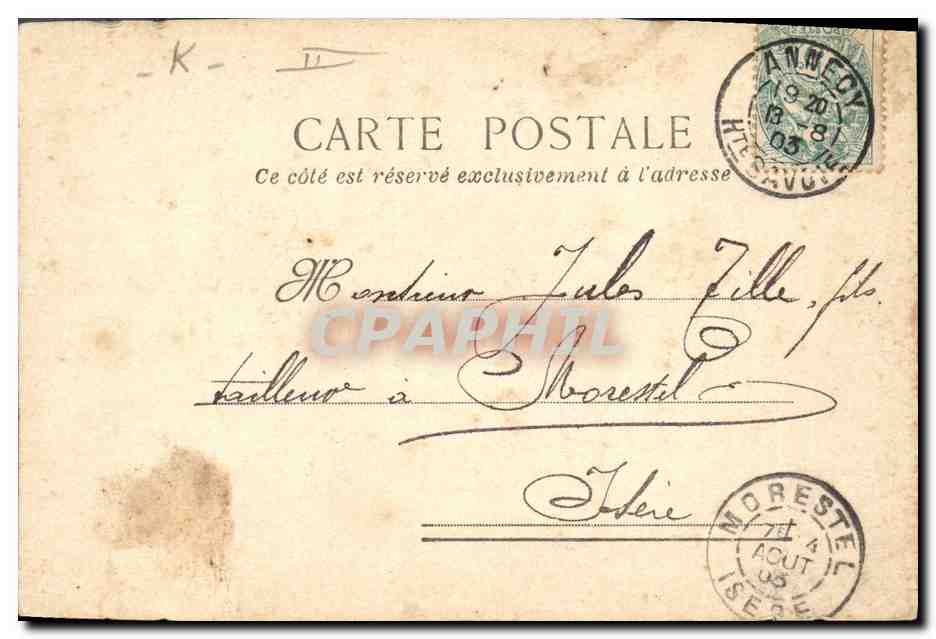 - K - II
ANNECY
19 20
13 - 8
03
HTE SAVOIE
CARTE POSTALE
Ce côté est réservé exclusivement à l'adresse
Monsieur Jules Tille, fils.
CPAPHIL
tailleur à Morestel
Isère
MORESTEL
7E 4
AOUT
03
ISERE